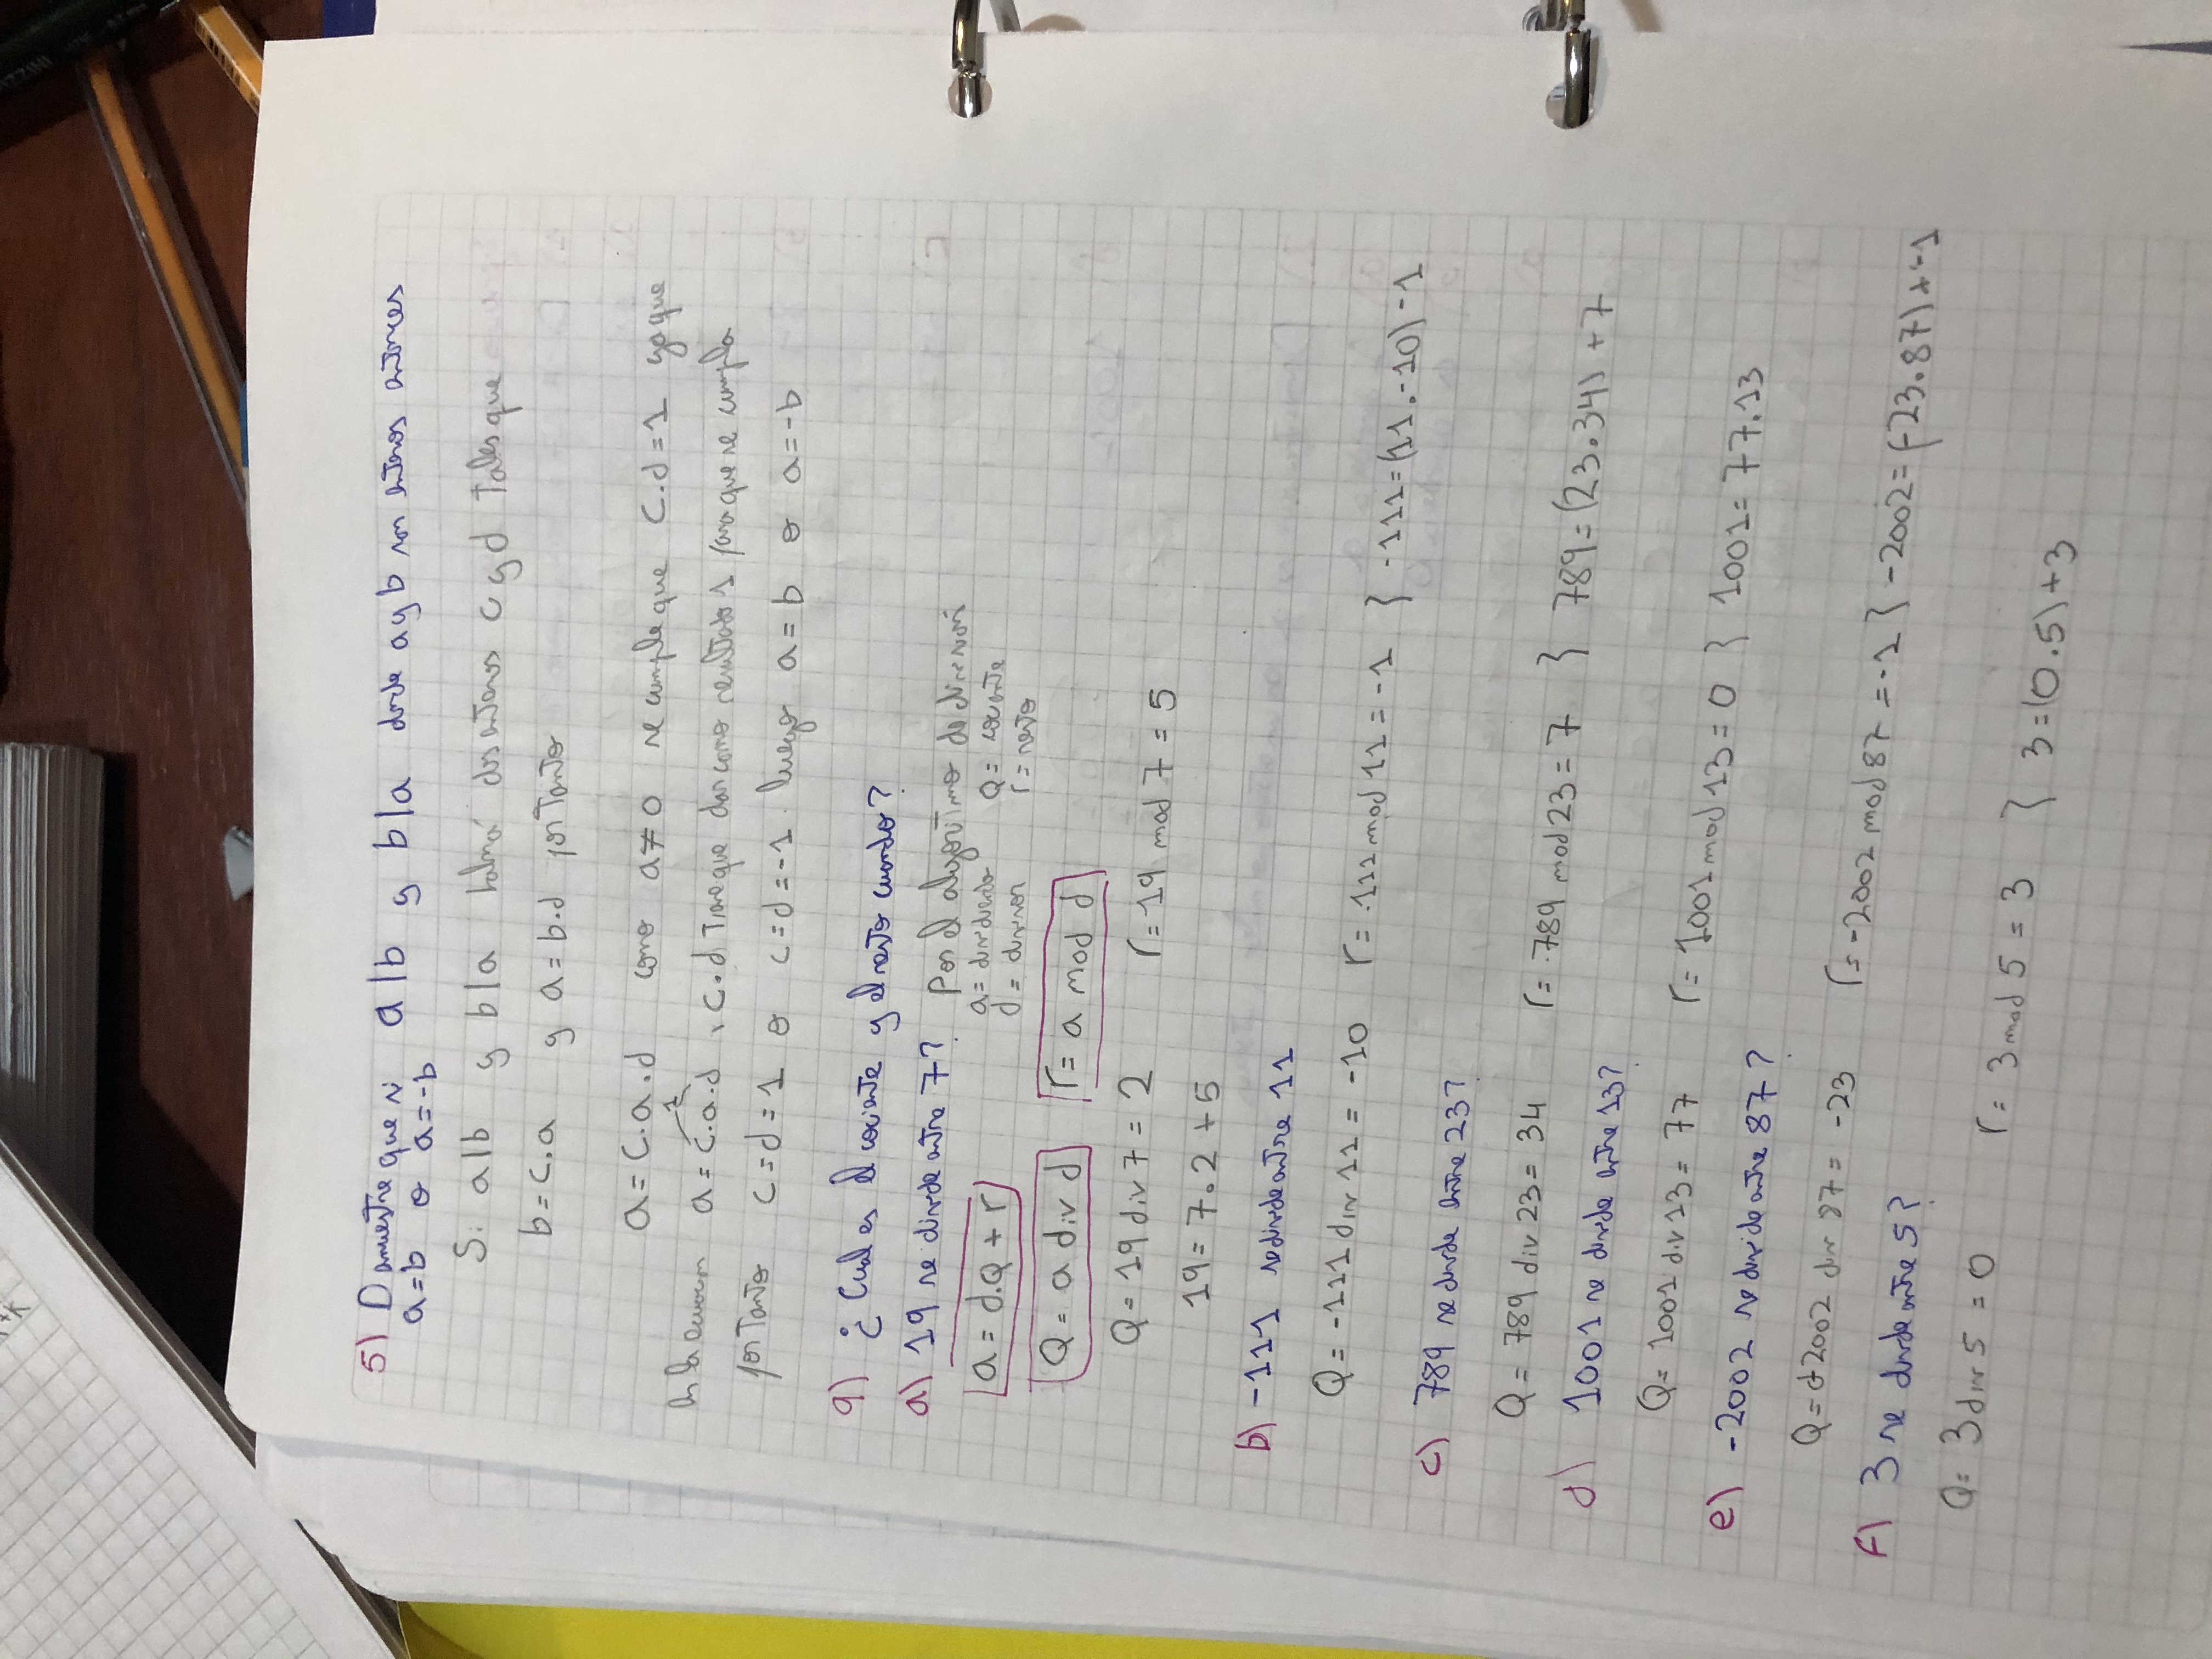 5) Demuestre que si a|b y b|a donde a y b son enteros entonces
a=b o a=-b
Si a|b y b|a habrá dos enteros c y d tales que
b=c.a y a=b.d por tanto
a=c.a.d como a≠0 se cumple que c.d=1 ya que
en la ecuacion a=c.a.d, c.d tiene que dar como resultado 1 para que se cumpla
1
por tanto c=d=1 o c=d=-1. luego a=b o a=-b
9) ¿Cual es el cociente y el resto cuando?
a) 19 se divide entre 7? Por el algoritmo de division
a = d.Q + r a = dividendo Q = cociente
d = divisor r = resto
Q = a div d r = a mod d
Q = 19 div 7 = 2 r = 19 mod 7 = 5
19 = 7.2 + 5
b) -111 se divide entre 11
Q = -111 div 11 = -10 r = -111 mod 11 = -1 } -111=(11.-10)-1
c) 789 se divide entre 23?
Q = 789 div 23 = 34 r = 789 mod 23 = 7 } 789=(23.34)+7
d) 1001 se divide entre 13?
Q = 1001 div 13 = 77 r = 1001 mod 13 = 0 } 1001 = 77.13
e) -2002 se divide entre 87?
Q = -2002 div 87 = -23 r = -2002 mod 87 = -1 } -2002=(-23.87)+-1
f) 3 se divide entre 5?
Q = 3 div 5 = 0 r = 3 mod 5 = 3 } 3=(0.5)+3